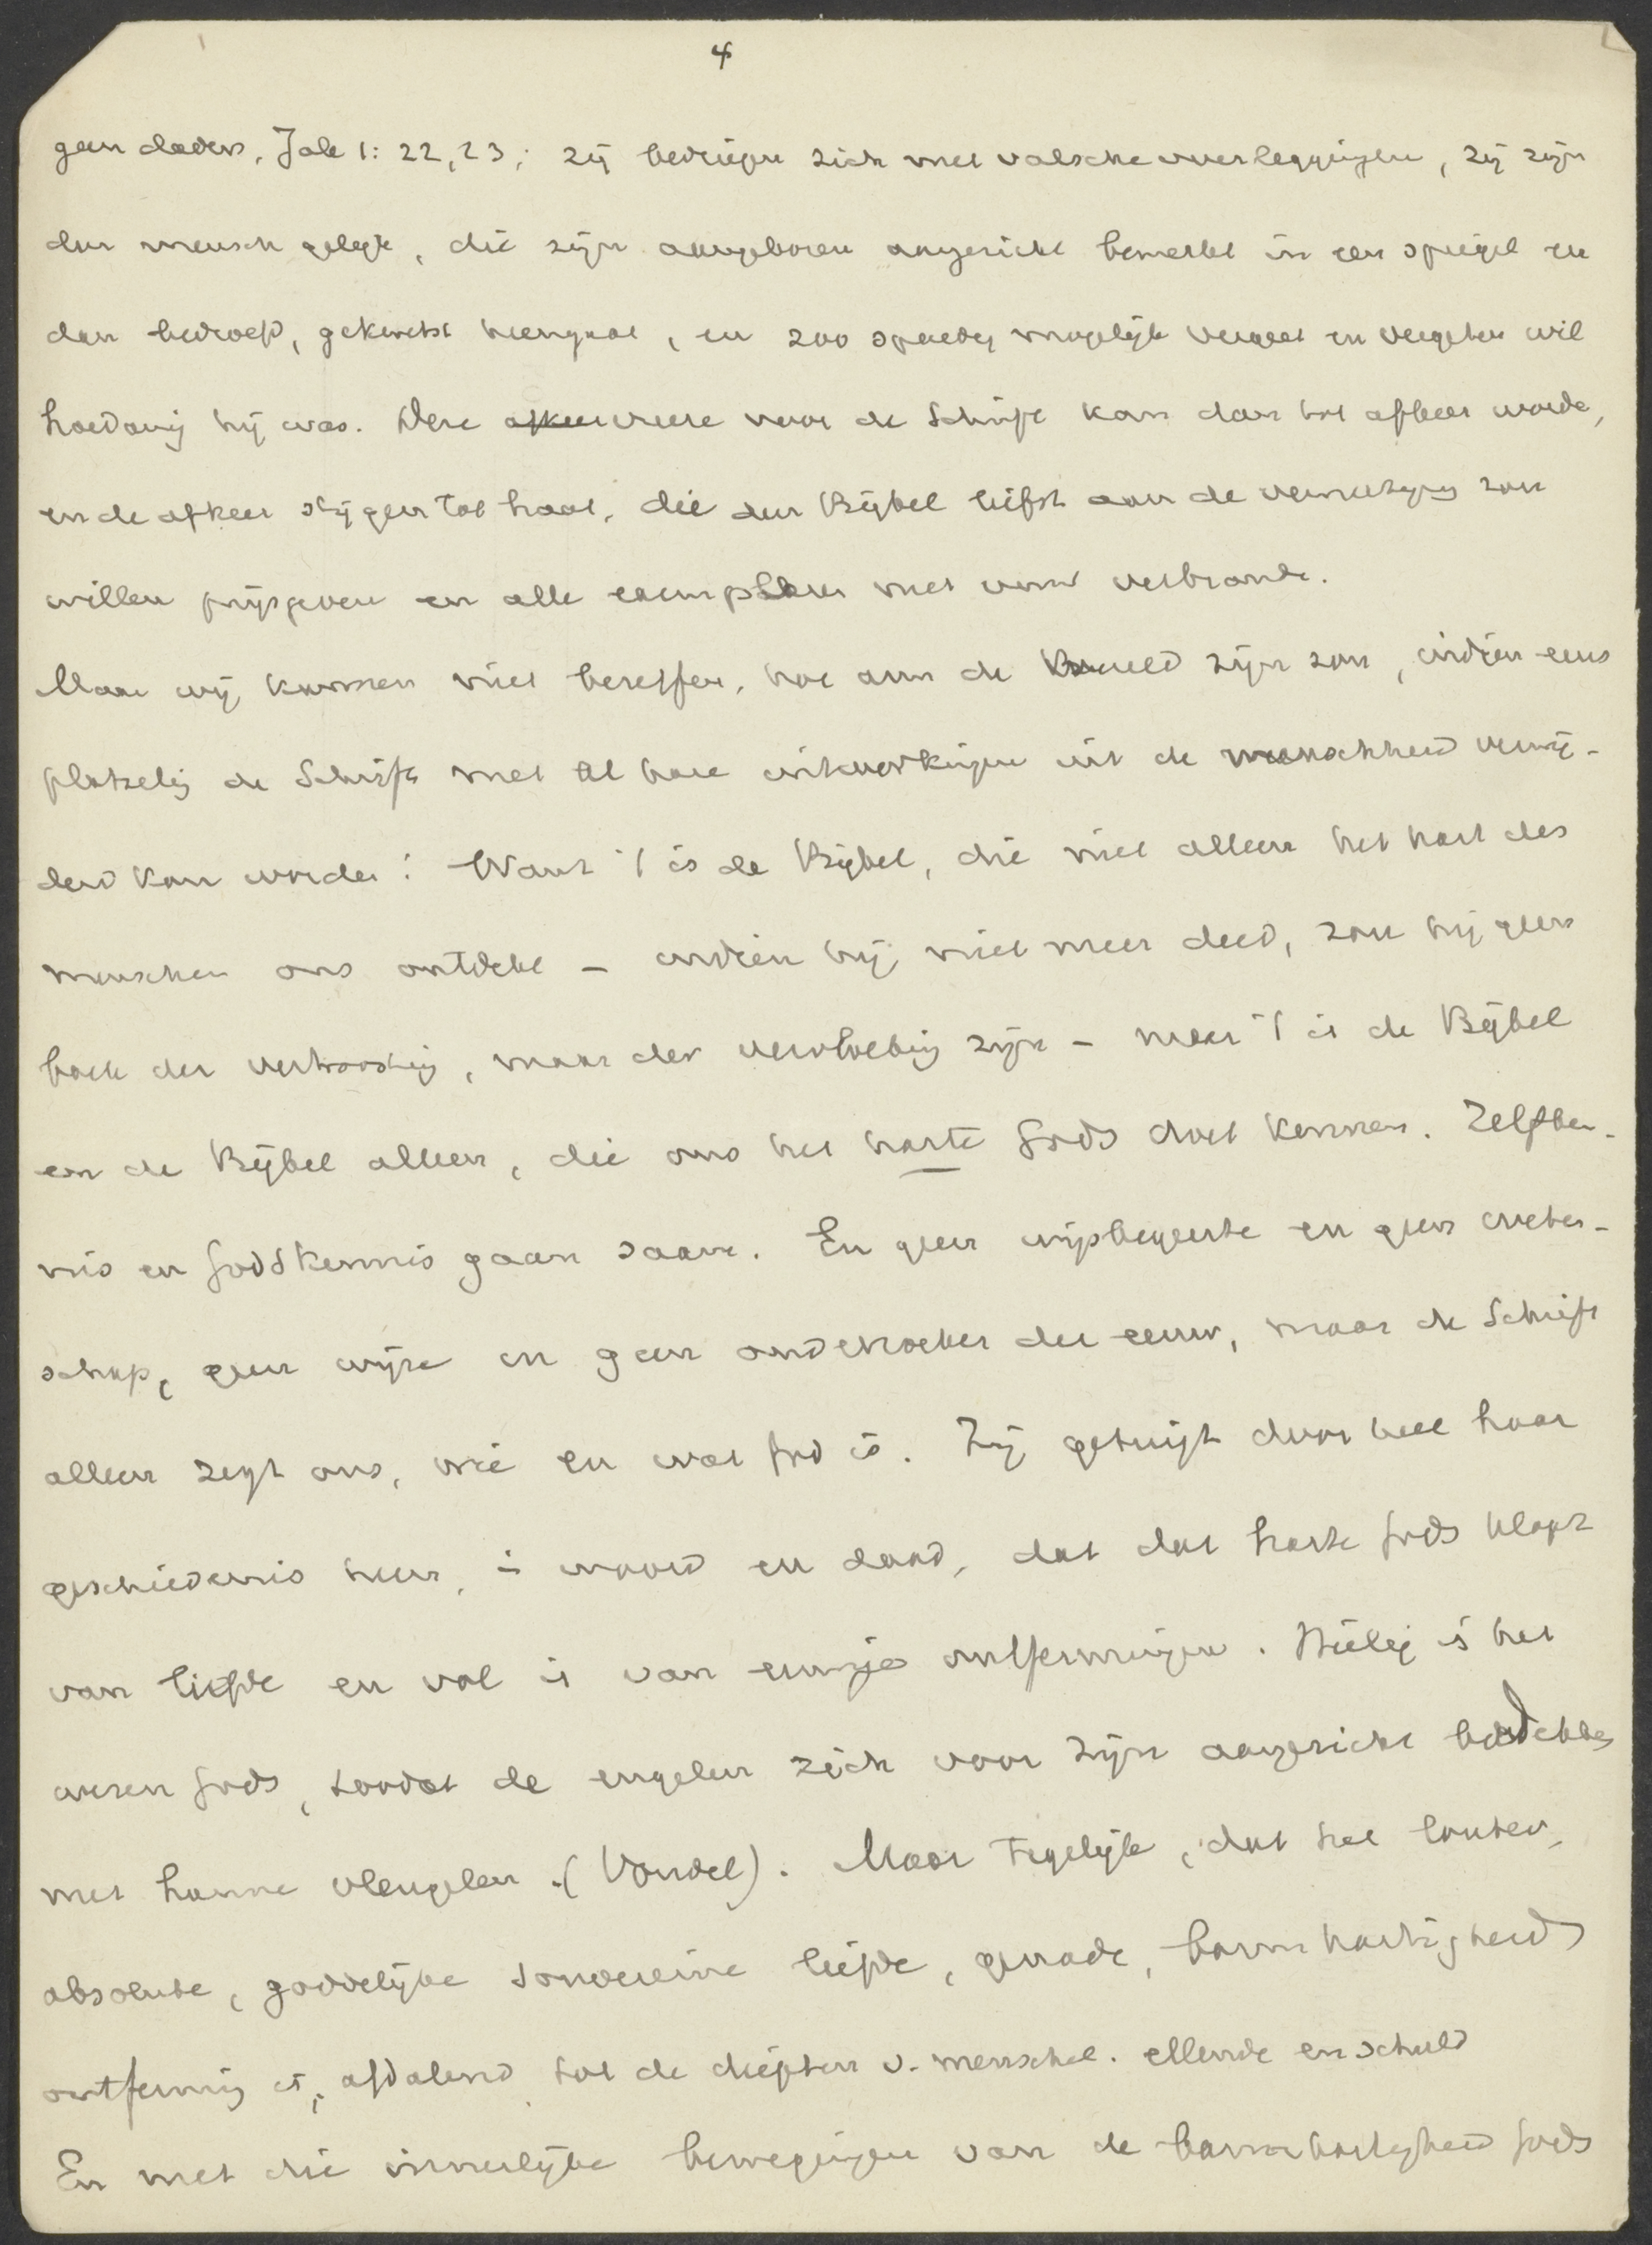 4
geen daders, Jak 1: 22, 23; zij bedriegen zich met valsche overleggingen, zij zijn
den mensch gelijk, die zijn aangeboren angezicht bemerkt in een spiegel en
dan bedroefd, gekwetst heengaat, en zoo spoedig mogelijk vergeet en vergeten wil
hoedanig hij was. Deze afkeer vreeze voor de Schrift kan dan tot afkeer worden,
en de afkeer stijgen tot haat, die den Bijbel liefst aan de vernietiging zou
willen prijsgeven en alle exemplaren met vuur verbranden.
Maar wij kunnen niet beseffen, hoe arm de wereld zijn zou, indien eens
plotselig de Schrift met al hare inwerkingen uit de menschheid verwij-
derd kon worden! Want 't is de Bijbel, die niet alleen het hart des
menschen ons ontdekt - indien hij niet meer deed, zou hij geen
boek der vertroosting, maar der vervloeking zijn - maar 't is de Bijbel
en de Bijbel alleen, die ons het harte Gods doet kennen. Zelfken-
nis en Godskennis gaan saam. En geen wijsbegeerte en geen weten-
schap, geen wijze en geen onderzoeker der eeuw, maar de Schrift
alleen zegt ons, wie en wat God is. Zij getuigt door heel haar
geschiedenis heen, in woord en daad, dat dat harte Gods klopt
van liefde en vol is van eeuwige ontfermingen. Heilig is het
wezen Gods, zoodat de engelen zich voor Zijn angezicht bedekken
met hunne vleugelen. (Vondel). Maar tegelijk, dat het louter,
absolute, goddelijke souvereine liefde, genade, barmhartigheid
ontferming is, afdalend tot de diepten v. menschel. ellende en schuld
En met die innerlijke bewegingen van de barmhartigheid Gods